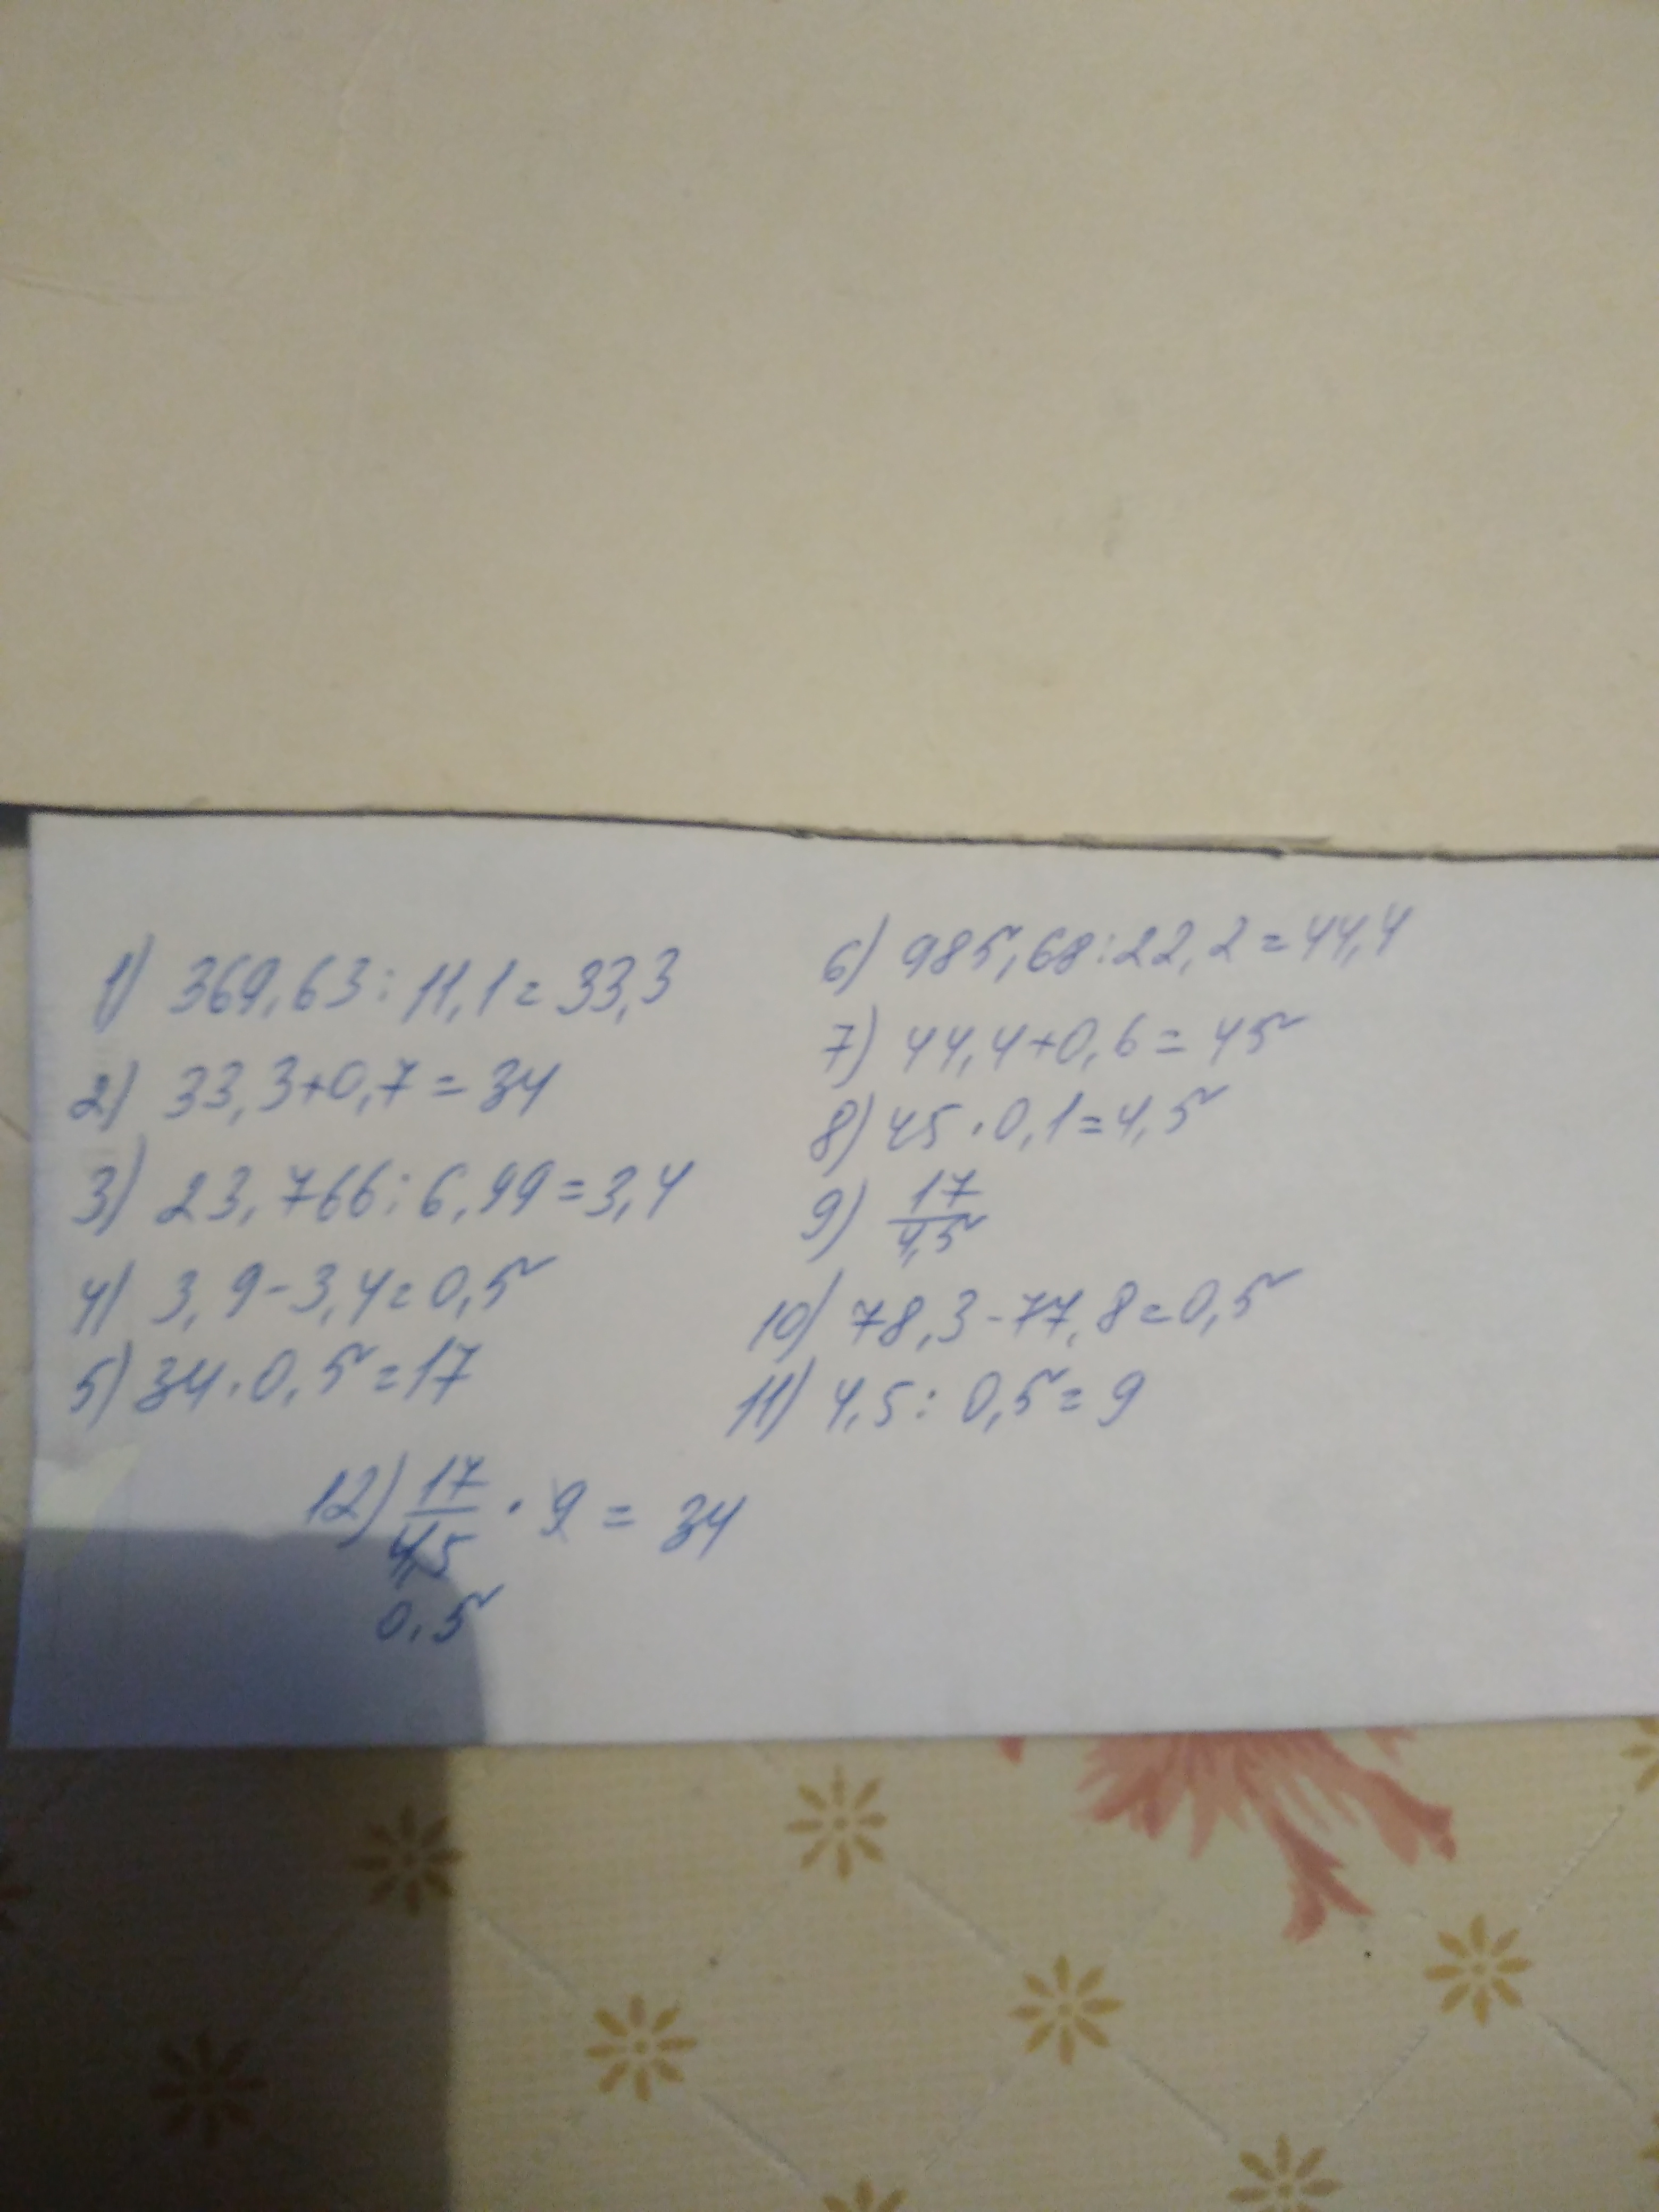 1) 369,63 : 11,1 = 33,3
2) 33,3+0,7 = 34
3) 23,766 : 6,99 = 3,4
4) 3,9 - 3,4 = 0,5
5) 34 · 0,5 = 17
6) 985,68 : 22,2 = 44,4
7) 44,4+0,6 = 45
8) 45 · 0,1 = 4,5
9) 17/4,5
10) 78,3 - 77,8 = 0,5
11) 4,5 : 0,5 = 9
12) 17/4,5 · 9 = 34
0,5